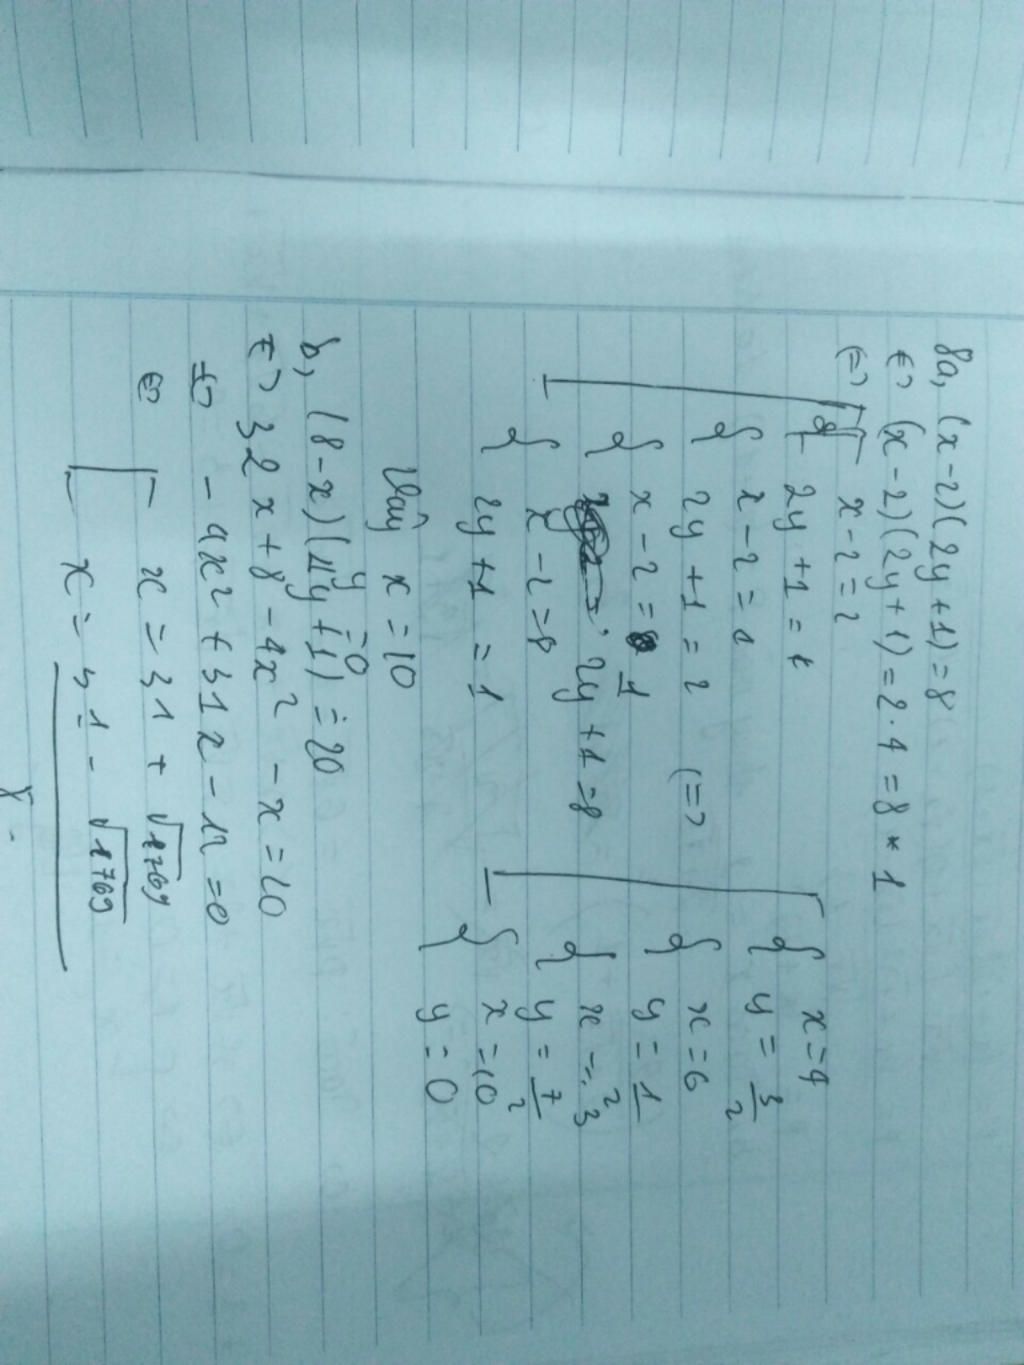 8a, (x-2)(2y+1)=8
<=> (x-2)(2y+1)=2.4=8*1
<=> x-2=2
2y+1=4
x-2=4
2y+1=2 <=>
x-2=1
2y+1=8
x-2=8
2y+1=1
x=4
y=3/2
x=6
y=1/2
x=3
y=7/2
x=10
y=0
Vậy x=10
y=0
b, (8-x)(4y+1)=20
<=> 32x+8-4x²-x=20
<=> -4x²+31x-12=0
<=> x=31+√769
x=31-√769
8